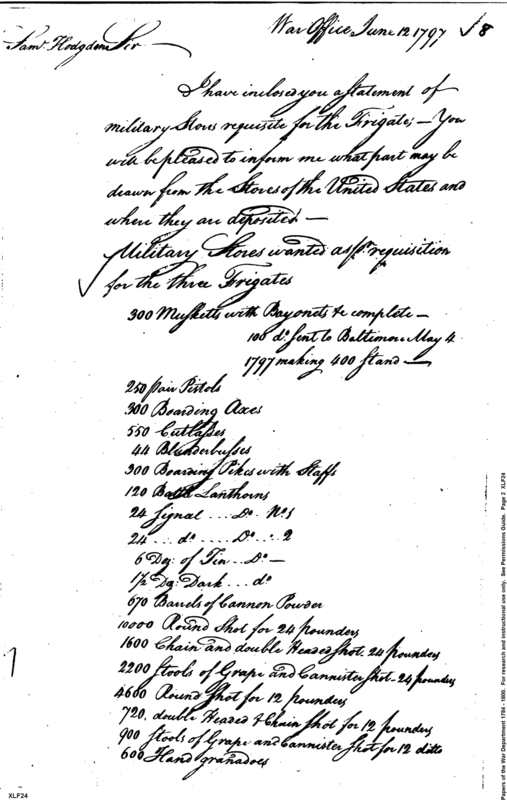 War Office June 12 1797
8
Saml. Hodgdon Sir
I have inclosed you a statement of
military Stores requisite for the Frigates;— You
will be pleased to inform me what part may be
drawn from the Stores of the United States and
where they are deposited.—
Military Stores wanted as pr. requisition
for the three Frigates
300 Musketts with Bayonets &c complete—
100 do. sent to Baltimore May 4
1797 making 400 Stand—
250 pair Pistols
300 Boarding Axes
550 Cutlasses
44 Blunderbusses
300 Boarding Pikes with Staffs
120 Battle Lanthorns
24 Signal ... Do. No. 1
24 ... do ... Do ... 2
6 Doz: of Tin .. Do.—
1½ Dz: Dark ... do
670 Barrels of Cannon Powder
10000 Round Shot for 24 pounders
1600 Chain and double Headed shot 24 pounders
2200 Stools of Grape and Cannister shot - 24 pounders
4600 Round Shot for 12 pounders
720. double Headed & Chain Shot for 12 pounders
900 Stools of Grape and Cannister Shot for 12 ditto
600 Hand granadoes
XLF24
Papers of the War Department 1784 - 1800. For research and instructional use only. See Permissions Guide. Page 2 XLF24